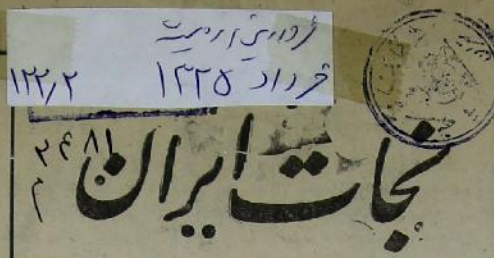 فروردین اردیبهشت
خرداد ۱۳۲۵ ۱۳۳٫۲
۲۶۸۱
۲
نجات ایران